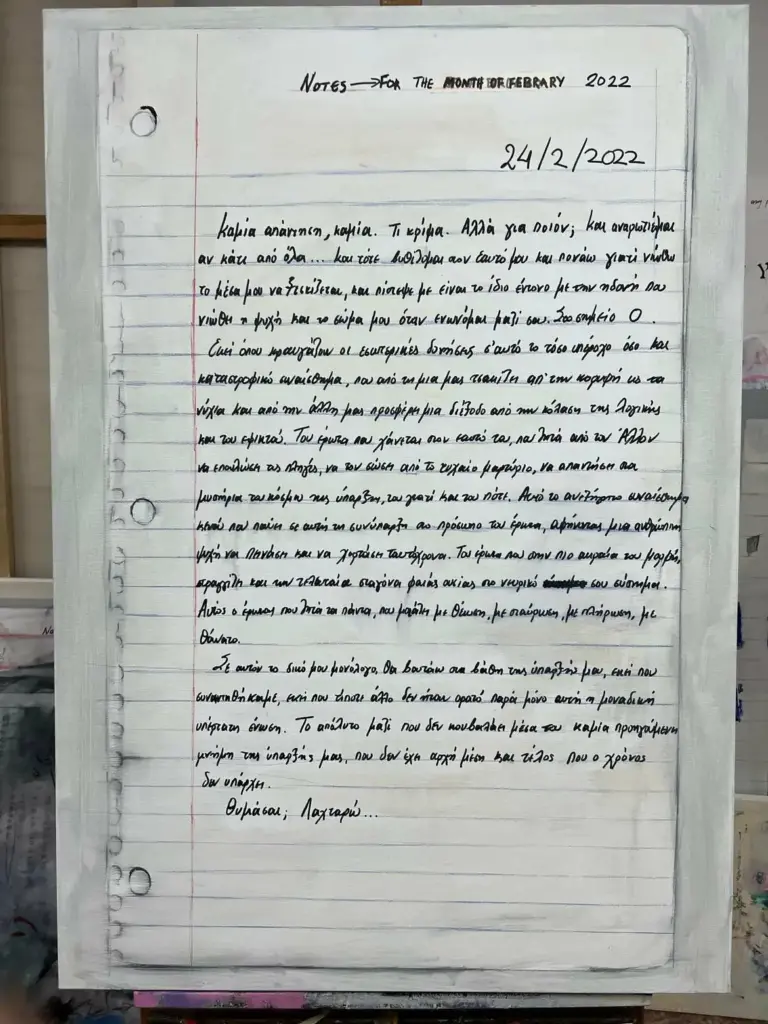 NOTES → FOR THE MONTH OF FEBRARY 2022
24/2/2022
Καμία απάντηση, καμία. Τι κρίμα. Αλλά για ποιόν; Και αναρωτιέμαι
αν κάτι από όλα... Και τότε βυθίζομαι στον εαυτό μου και πονάω γιατί νιώθω
το μέσα μου να ξεσκίζεται, και πίστεψε με είναι το ίδιο έντονο με την ηδονή που
νιώθει η ψυχή και το σώμα μου όταν ενωνόμαι μαζί σου. Στο σημείο 0.
Εκεί όπου κραυγάζουν οι εσωτερικές δονήσεις σ'αυτό το τόσο υπέροχο όσο και
καταστροφικό συναίσθημα, που από τη μια μας τσακίζει απ'την κορυφή ως τα
νύχια και από την άλλη μας προσφέρει μια διέξοδο από την κόλαση της λογικής
και του εφικτού. Του έρωτα που χάνεται στον εαυτό του, που ζητά από τον Άλλον
να επουλώσει τις πληγές, να τον σώσει από το τυχαίο μαρτύριο, να απαντήσει στα
μυστήρια του κόσμου της ύπαρξης, του γιατί και του πότε. Αυτό το ανεξήγητο συναίσθημα
κενού που παύει σε αυτή τη συνύπαρξη στο πρόσωπο του έρωτα, αφήνοντας μια ανθρώπινη
ψυχή να πεινάσει και να χορτάσει ταυτόχρονα. Του έρωτα που στην πιο ακραία του μορφή,
στραγγίζει και την τελευταία σταγόνα φαιάς ουσίας στο νευρικό σου σύστημα.
Αυτός ο έρωτας που ζητά τα πάντα, που μοιάζει με θέωση, με σταύρωση, με πλήρωση, με
θάνατο.
Σε αυτόν το δικό μου μονόλογο, θα βουτάω στα βάθη της ύπαρξής μου, εκεί που
συναντηθήκαμε, εκεί που τίποτε άλλο δεν ήταν ορατό παρά μόνο αυτή η μοναδική
υπέρτατη ένωση. Το απόλυτο μαζί που δεν κουβαλάει μέσα του καμία προηγούμενη
μνήμη της ύπαρξής μας, που δεν έχει αρχή μέση και τέλος που ο χρόνος
δεν υπάρχει.
Θυμάσαι; Λαχταρώ...